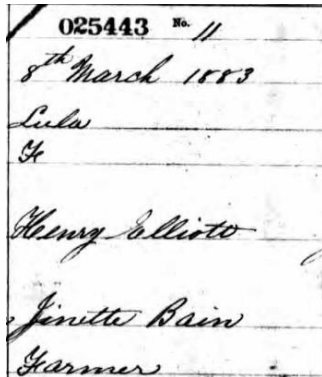 025443 No. 11
8th March 1883
Lula
Fe
Henry Elliott
Jinette Bain
Farmer